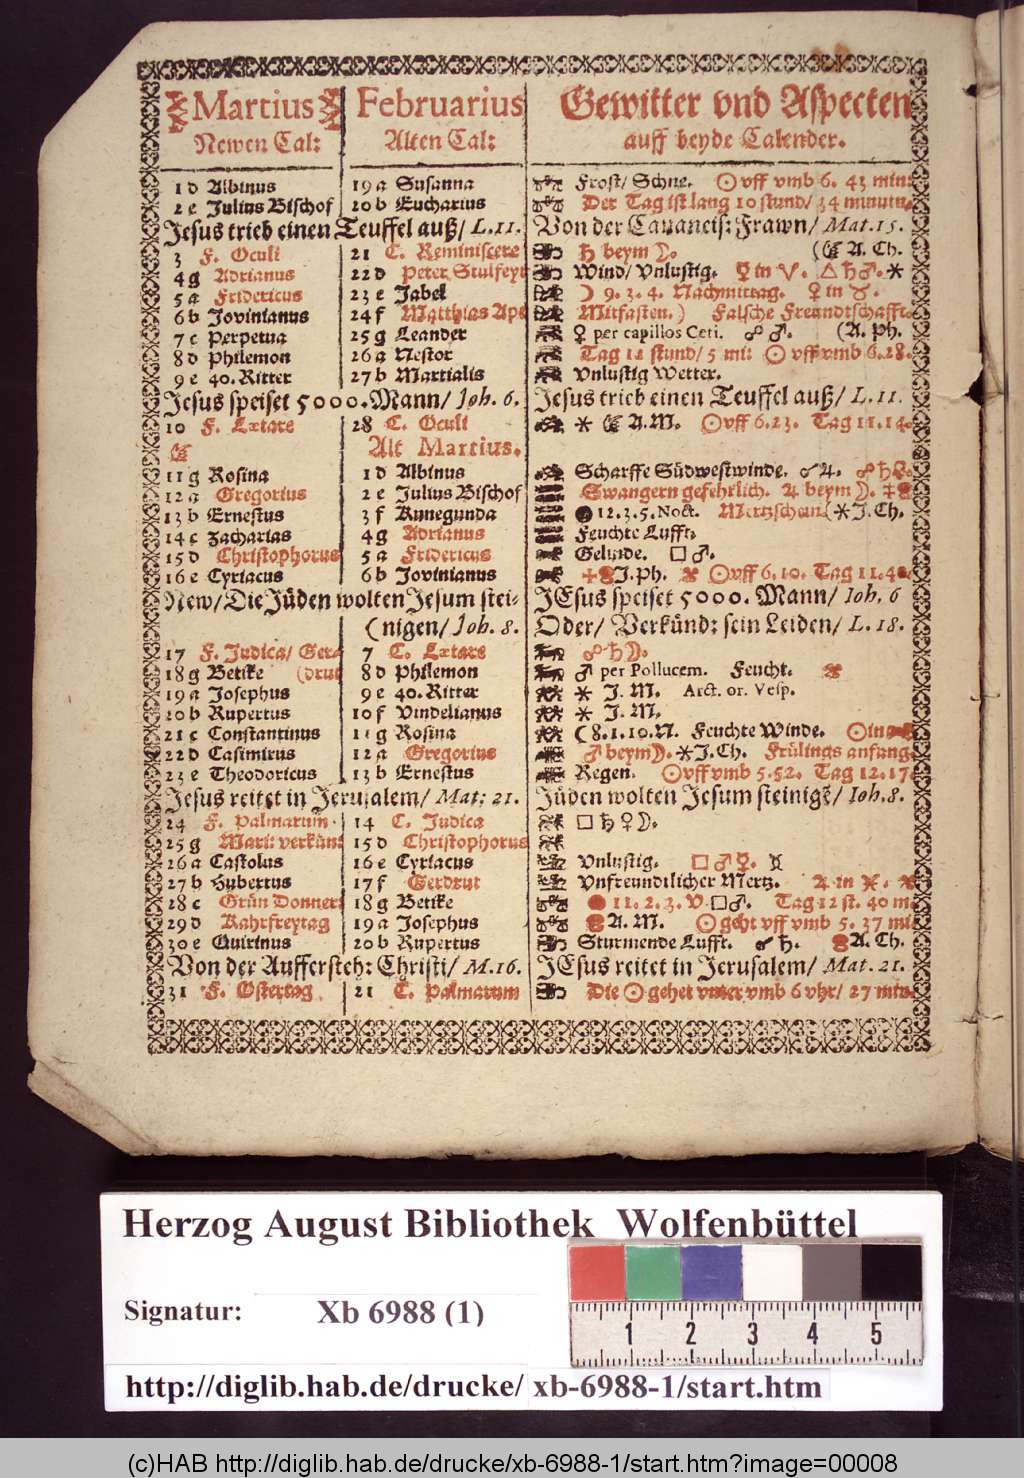 Martius Februarius Gewitter vnd Aspecten
Newen Cal: Alten Cal: auff beyde Calender.
1 d Albinus 19 a Susanna Frost/ Schne. ☉ vff vmb 6. 43 min:
2 e Julius Bischof 20 b Eucharius Der Tag ist lang 10 stund/ 34 minutu.
Jesus trieb einen Teuffel auß/ L. 11. Von der Cananeis: Frawn/ Mat. 15.
3 F. Oculi 21 C. Reminiscere ♄ beym ☽. (A. Ch.
4 g Adrianus 22 d Peter Stulfeyr Wind/ Vnlustig. ☿ in ♈. △ ♄ ♂. ⚹
5 a Fridericus 23 e Jabel ☽ 9. 3. 4. Nachmittag. ♀ in ♉.
6 b Jovinianus 24 f Matthias Aps Mitfasten.) Falsche Freundtschafft.
7 c Perpetua 25 g Leander ♀ per capillos Ceti. ☍ ♂. (A. Ph.
8 d Philemon 26 a Nestor Tag 11 stund/ 5 mi: ☉ vff vmb 6. 28.
9 e 40. Ritter 27 b Martialis Vnlustig Wetter.
Jesus speiset 5000. Mann/ Joh. 6. Jesus trieb einen Teuffel auß/ L. 11.
10 F. Lætare 28 C. Oculi ⚹ A. M. ☉ vff 6. 23. Tag 11. 14.
Alt Martius.
11 g Rosina 1 d Albinus Scharffe Südwestwinde. ☌ ♃. ☍ ♄
12 a Gregorius 2 e Julius Bischof Swangern gefehrlich. ♃ beym ☽.
13 b Ernestus 3 f Kunegunda ● 12. 3. 5. Noct. Mertzschein (⚹ J. Ch.
14 c Zacharias 4 g Adrianus Feuchte Lufft.
15 d Christophorus 5 a Fridericus Gelinde. □ ♂.
16 e Cyriacus 6 b Jovinianus J. Ph. ☉ vff 6. 10. Tag 11. 4
New/ Die Jüden wolten Jesum stei- JEsus speiset 5000. Mann/ Ioh. 6
(nigen/ Joh. 8. Oder/ Verkünd: sein Leiden/ L. 18.
17 F. Judica/ Ger- 7 C. Lætare ☍ ♄ ☽.
18 g Betike (drut 8 d Philemon ♂ per Pollucem. Feucht.
19 a Josephus 9 e 40. Ritter ⚹ J. M. Arct. or. Vesp.
20 b Rupertus 10 f Vindelianus ⚹ J. M.
21 c Constantinus 11 g Rosina ☾ 8. 1. 10. N. Feuchte Winde. ☉ in
22 d Casimirus 12 a Gregorius ♂ beym ☽. ⚹ J. Ch. Frülings anfang.
23 e Theodoricus 13 b Ernestus Regen. ☉ vff vmb 5. 52. Tag 12. 17
Jesus reitet in Jerusalem/ Mat: 21. Jüden wolten Jesum steinigē/ Ioh. 8.
24 F. Palmarum 14 C. Judica □ ♄ ♀ ☽.
25 g Mari: verkün: 15 d Christophorus
26 a Castolus 16 e Cyriacus Vnlustig. □ ♂ ☿.
27 b Hubertus 17 f Gerdrut Vnfreundtlicher Mertz. ♃ in ♓.
28 c Grün Donners 18 g Betike 11. 2. 3. V. □ ♂. Tag 12 st. 40 m.
29 d Kahrfreytag 19 a Josephus A. M. ☉ geht vff vmb 5. 37 mi.
30 e Quirinus 20 b Rupertus Sturmende Lufft. ☌ ♄. A. Ch.
Von der Aufferstch: Christi/ M. 16. JEsus reitet in Jerusalem/ Mat. 21.
31 F. Ostertag 21 C. Palmarum Die ☉ gehet vnter vmb 6 vhr/ 27 min.
Herzog August Bibliothek Wolfenbüttel
Signatur: Xb 6988 (1)
1 2 3 4 5
http://diglib.hab.de/drucke/ xb-6988-1/start.htm
(c)HAB http://diglib.hab.de/drucke/xb-6988-1/start.htm?image=00008